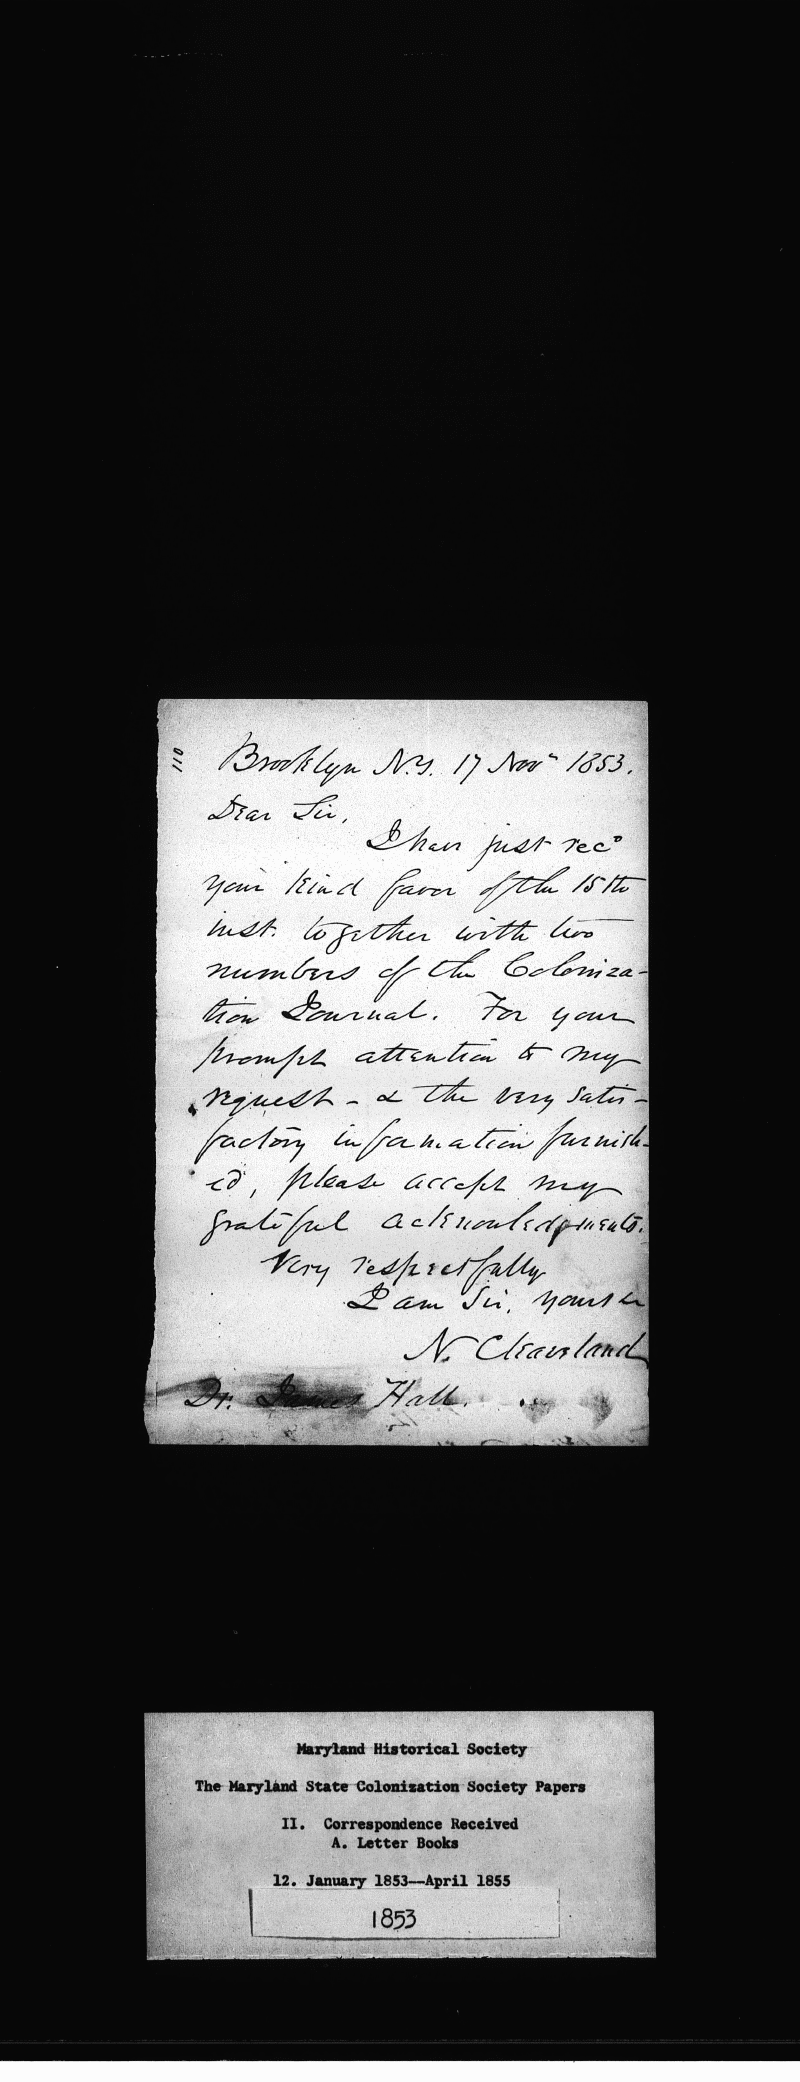 110
Brooklyn N.Y. 17 Novr 1853.
Dear Sir,
I have just recd
your kind favor of the 15th
inst. together with two
numbers of the Coloniza-
tion Journal. For your
prompt attention to my
request - & the very satis-
factory information furnish-
ed, please accept my
grateful acknowledgments.
Very respectfully
I am Sir, yours &c
N. Cleaveland
Dr. James Hall.
Maryland Historical Society
The Maryland State Colonization Society Papers
II. Correspondence Received
A. Letter Books
12. January 1853--April 1855
1853